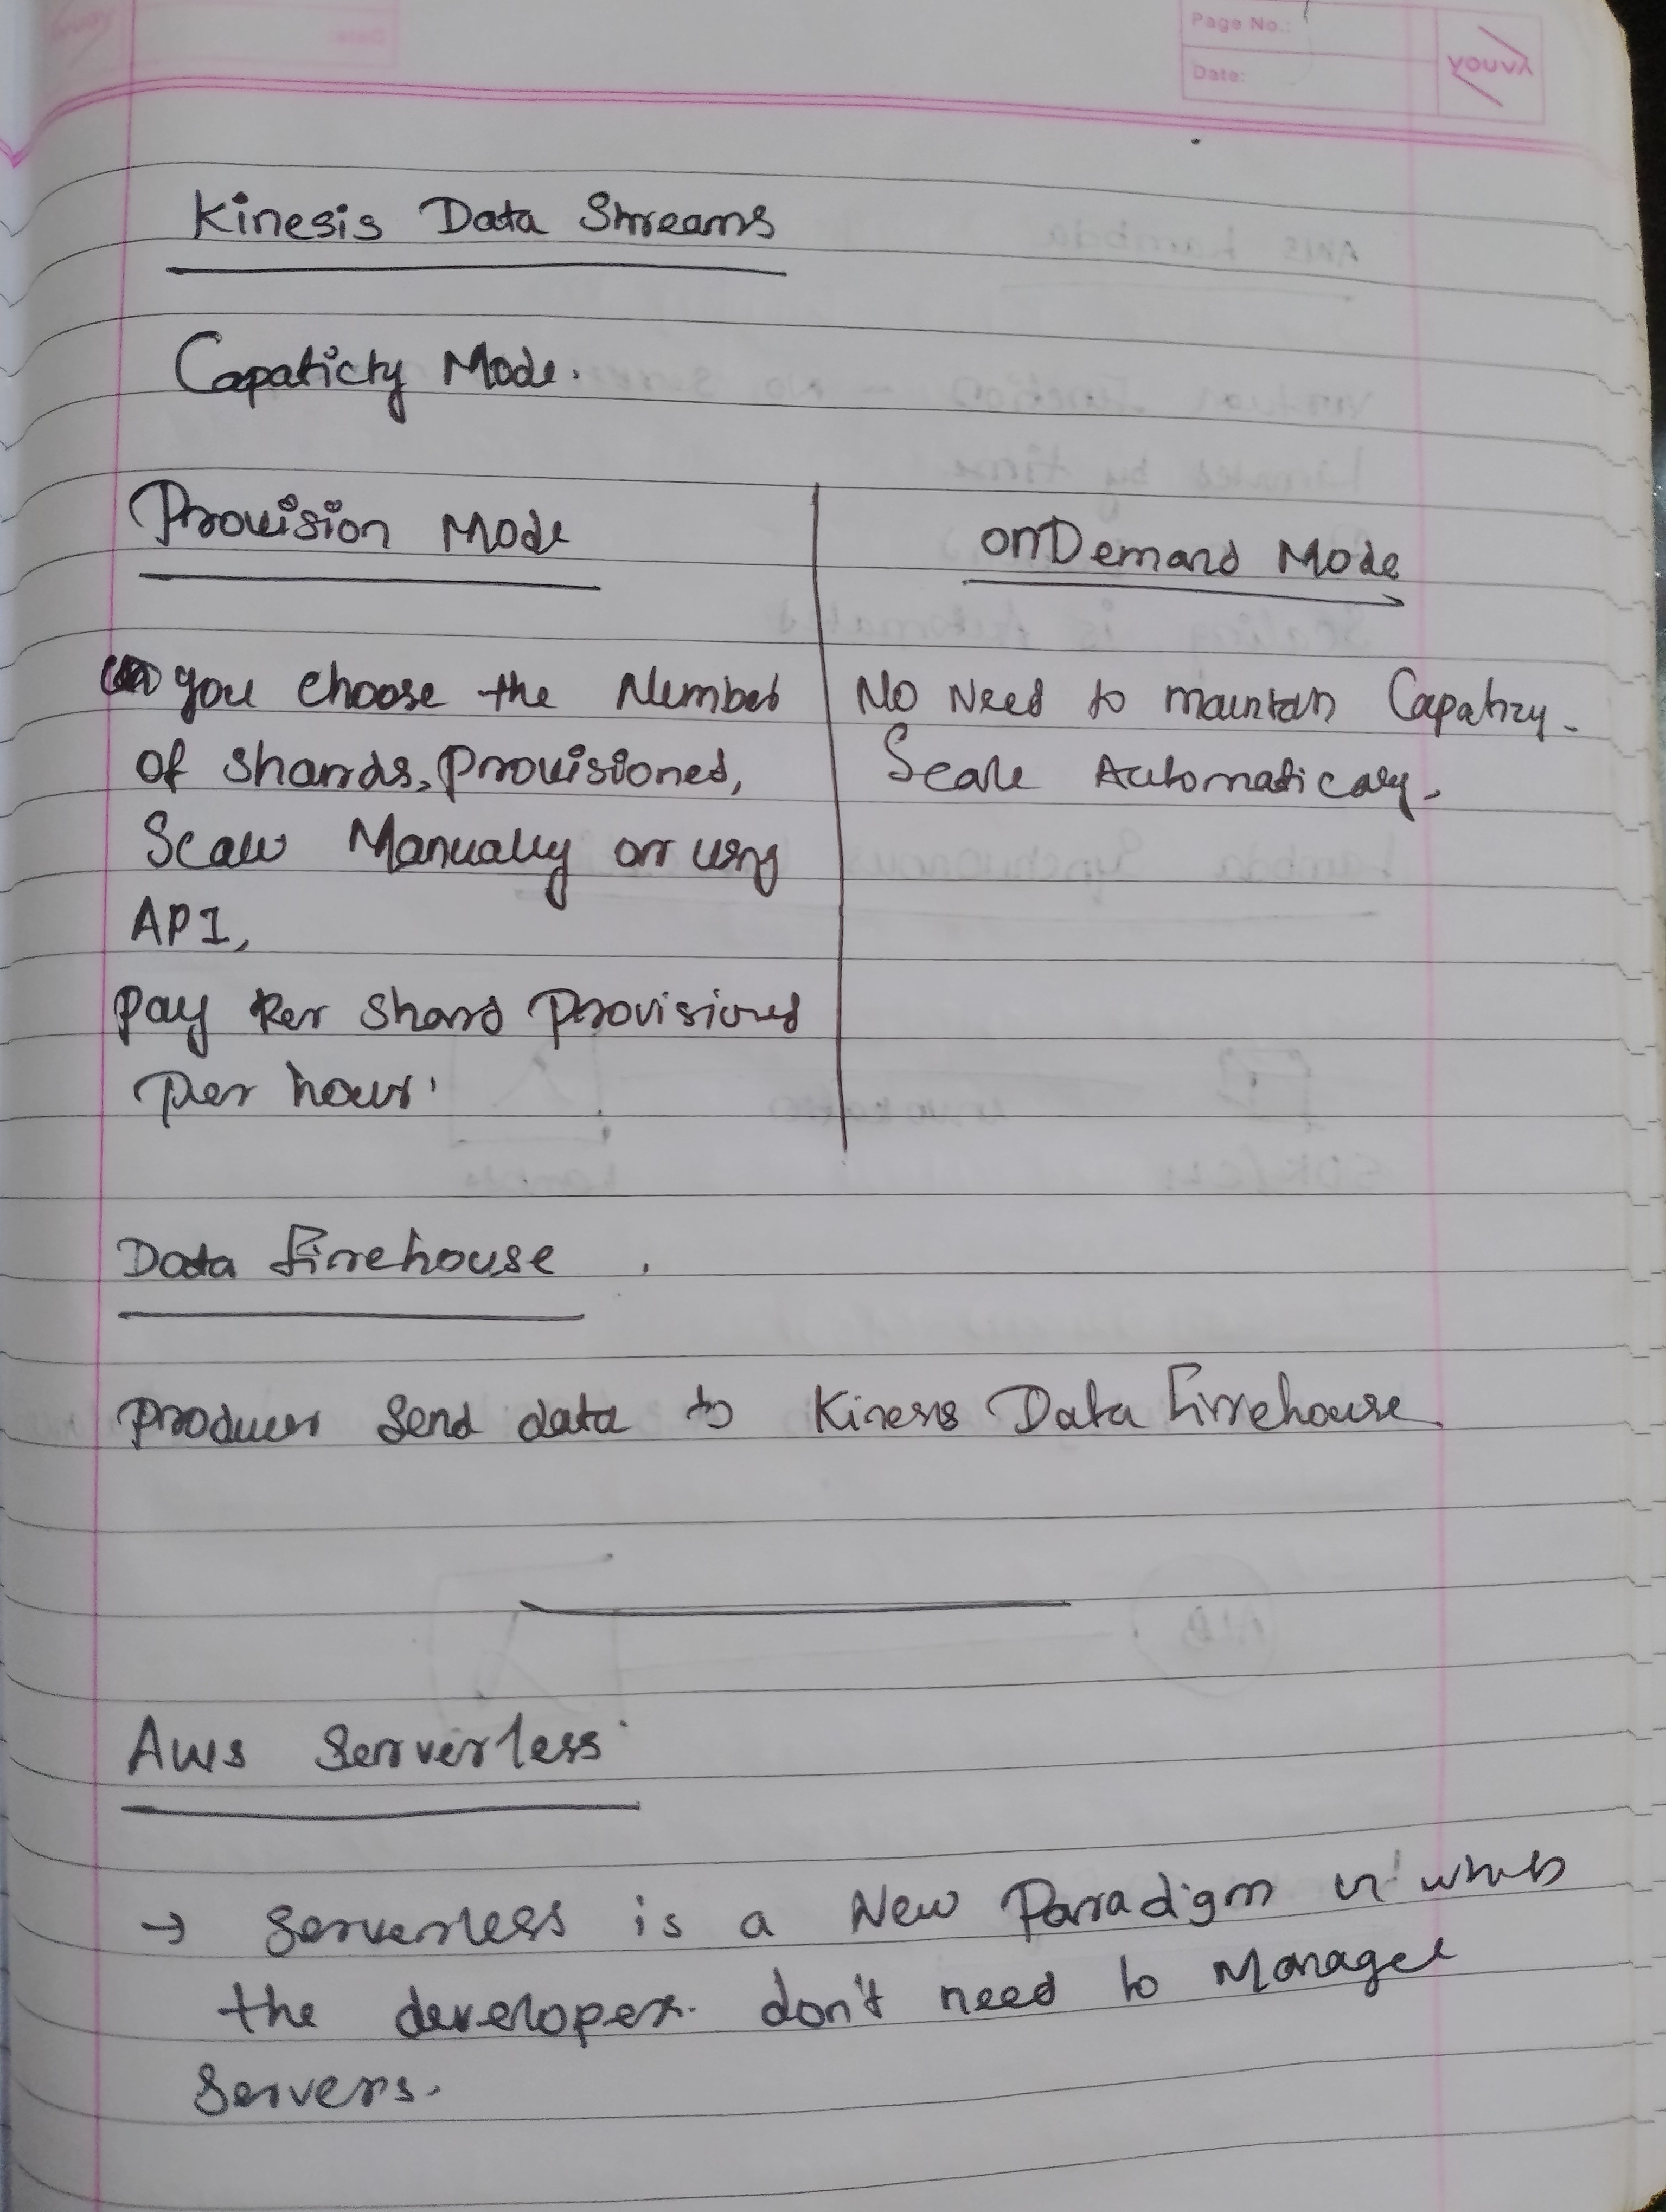 Page No.:
Date:
Youva
Kinesis Data Streams
Capaticty Mode.
Provision Mode
onDemand Mode
you choose the Number
of shards, provisioned,
Scale Manually or using
API,
Pay Per Shard Provisioned
Per hour.
No Need to maintain Capatizy.
Scale Automaticaly.
Data Firehouse
Producer Send data to Kinesis Data Firehouse
AWS Serverless
→ Serverless is a New Paradigm in which
the developer don't need to Manage
Servers.